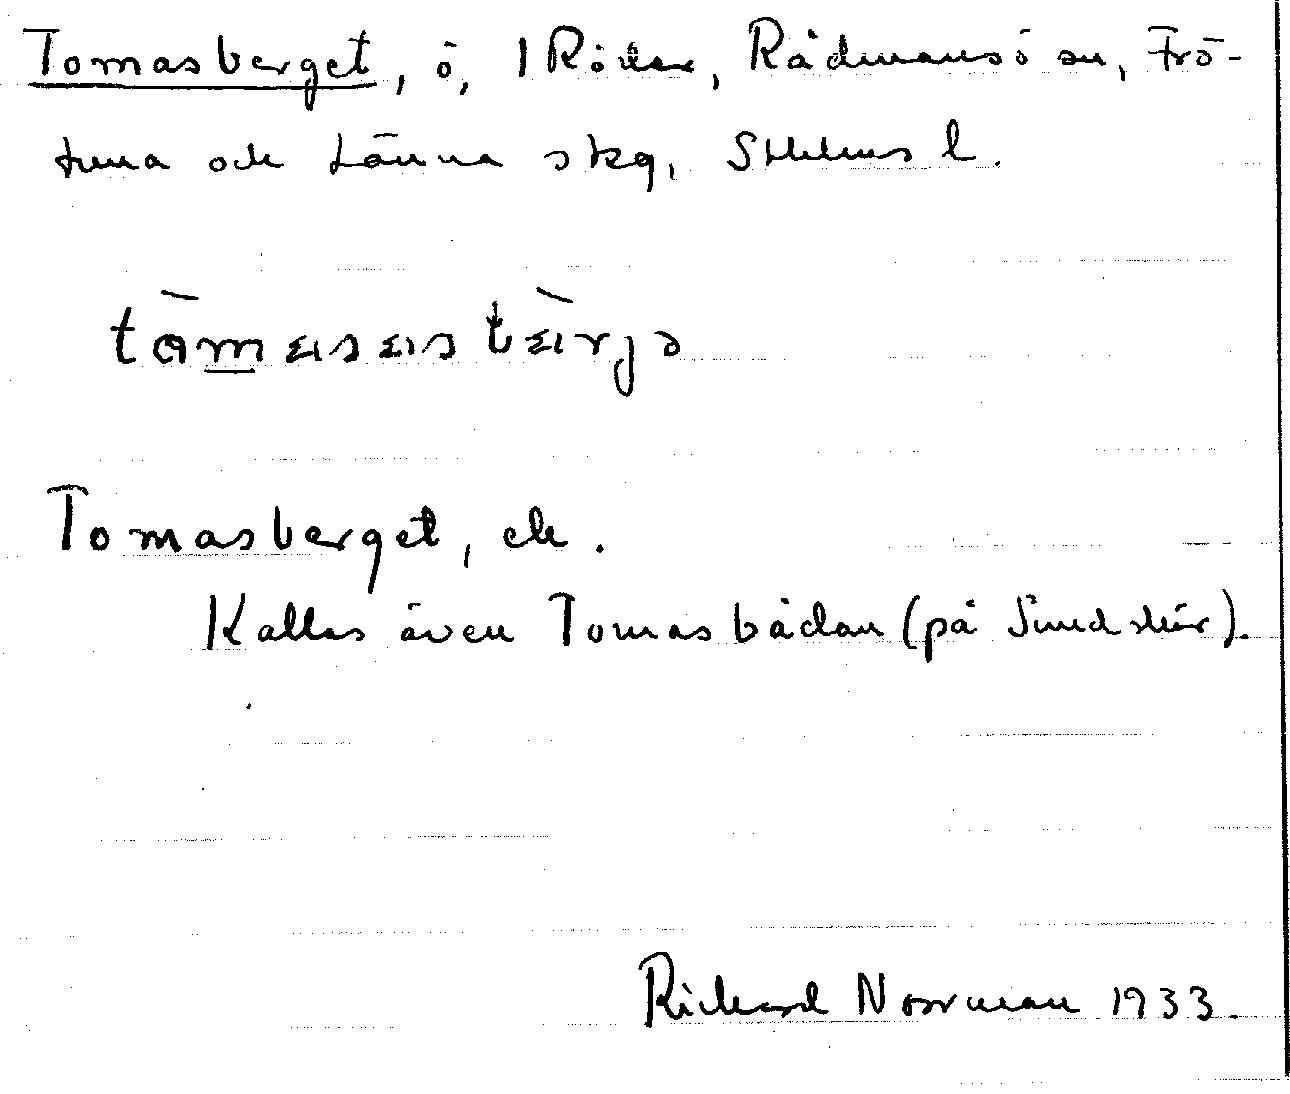 Tomasberget, ö, I Röder, Rådmansö sn, Frö-
tuna och Länna skg, Sthlms l.
Tomasberget, ek.
Kallas även Tomasbådan (på Sundskär).
Rickard Norrman 1933.